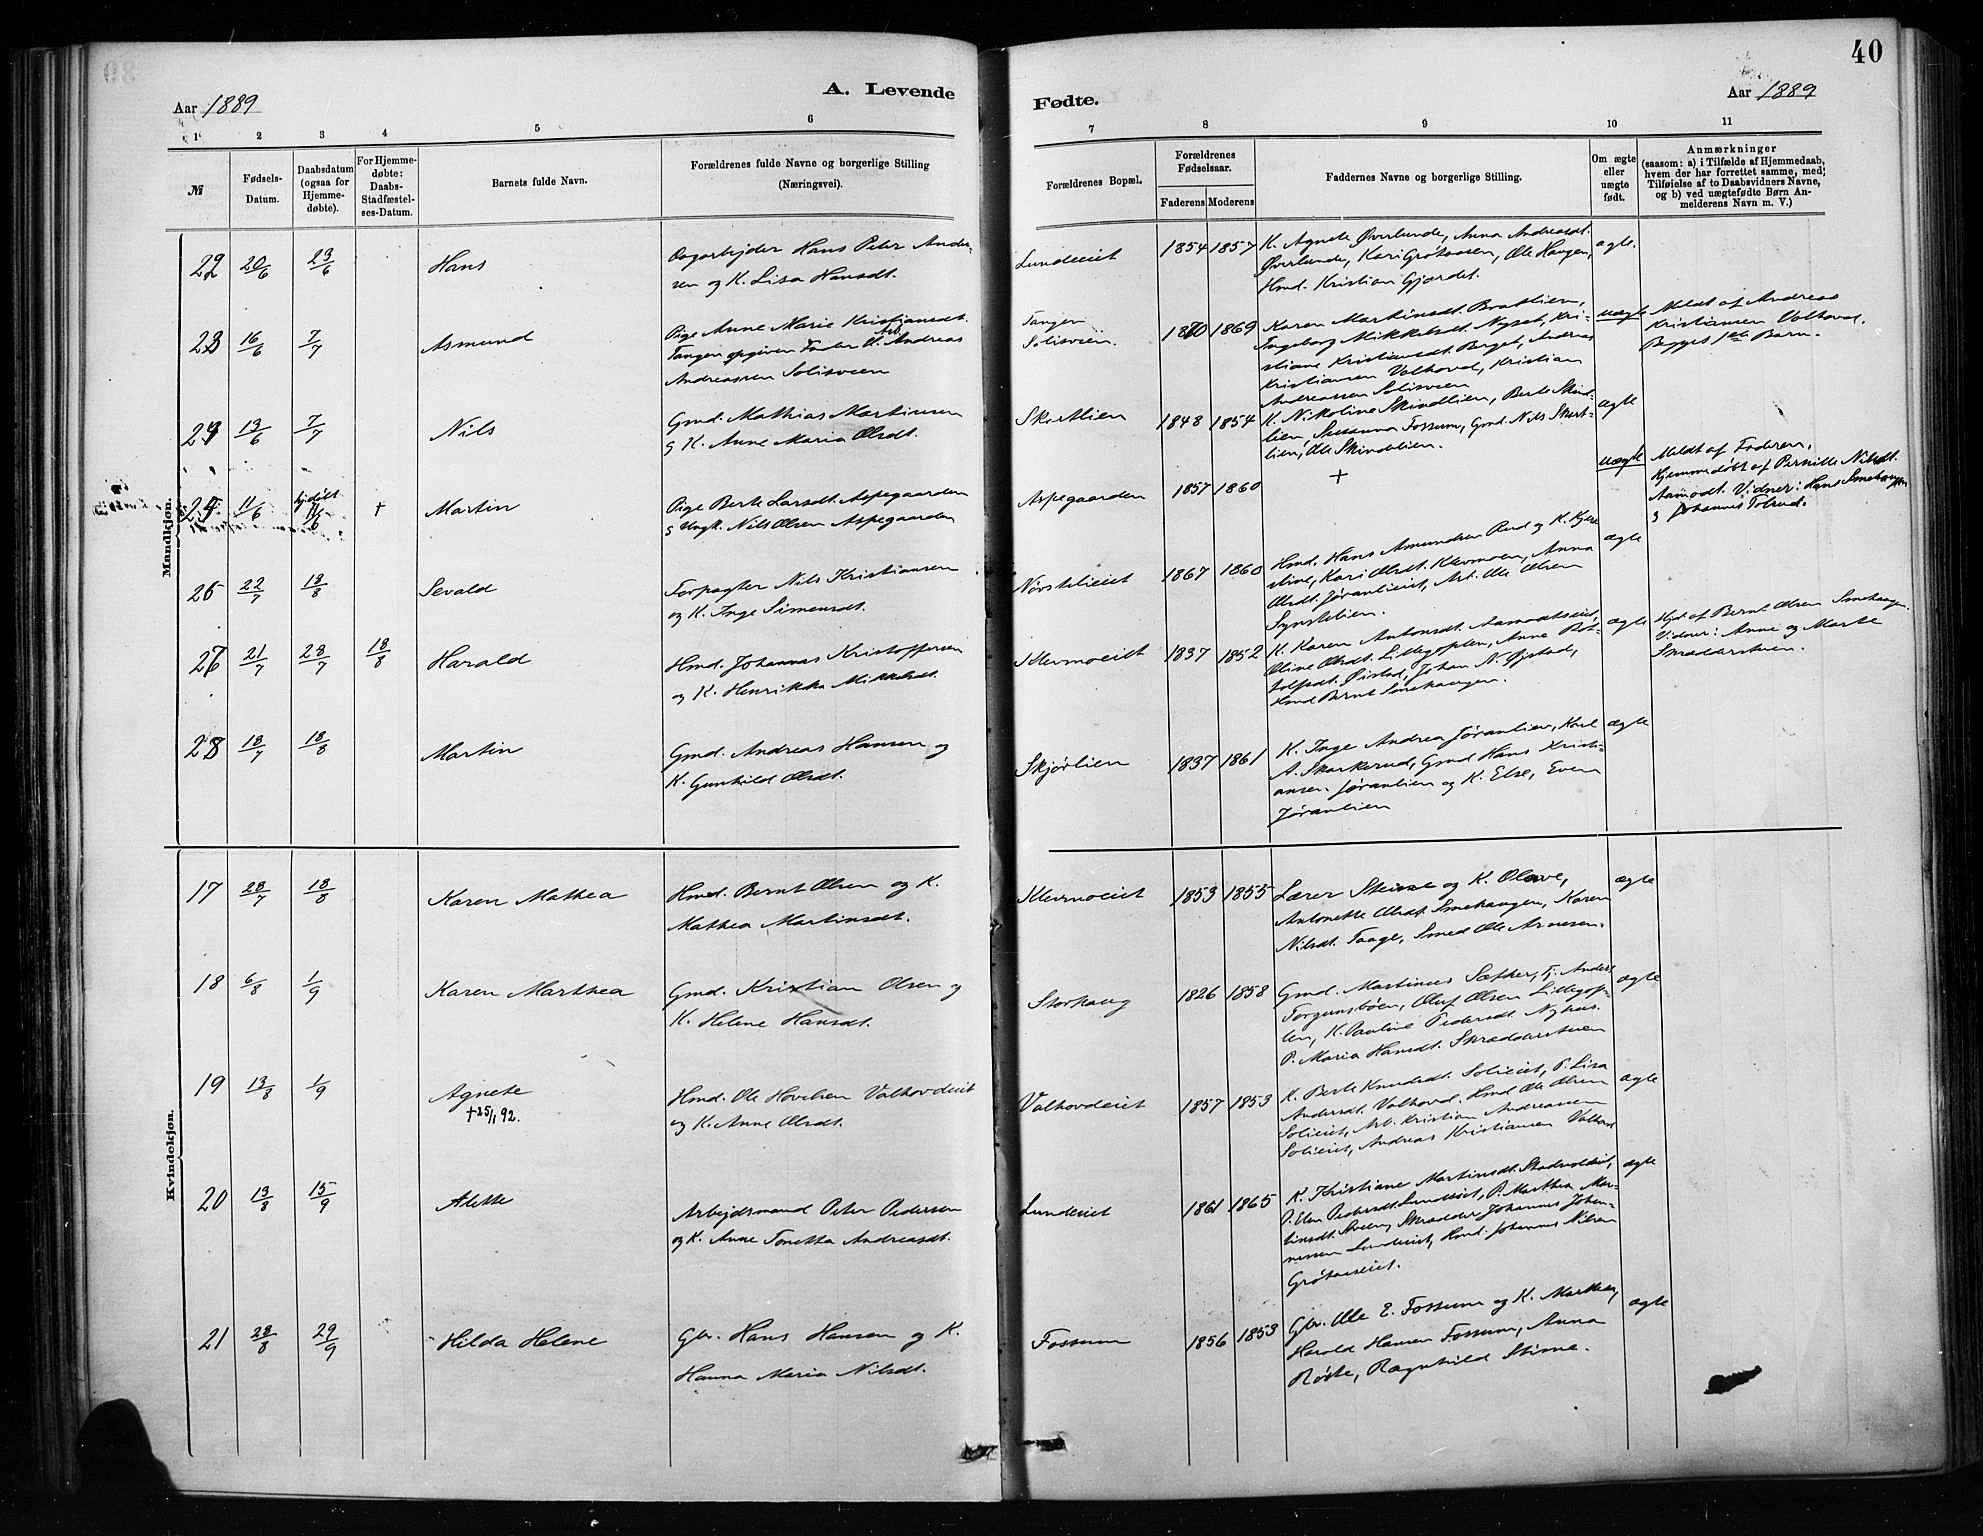 40
Aar 1889
A. Levende
Fødte.
Aar 1889
1 2 3 4 5 6 7 8 9 10 11
№
Fødsels-
Datum.
Daabsdatum
(ogsaa for
Hjemme-
døbte).
For Hjemme-
døbte:
Daabs-
Stadfæstel-
ses-Datum.
Barnets fulde Navn.
Forældrenes fulde Navne og borgerlige Stilling
(Næringsvei).
Forældrenes Bopæl.
Forældrenes
Fødselsaar.
Faderens Moderens
Faddernes Navne og borgerlige Stilling.
Om ægte
eller
uægte
født.
Anmærkninger
(saasom: a) i Tilfælde af Hjemmedaab,
hvem der har forrettet samme, med
Tilføielse af to Daabsvidners Navne,
og b) ved uægtefødte Børn An-
melderens Navn m. V.)
Mandkjøn.
22 20/6 23/6 Hans
Dagarbejder Hans Peter Ander-
sen og K. Lisa Hansdt.
Lundeeiet 1854 1857
K. Agnete Øverlunde, Anna Andreasdt.
Øverlunde, Kari Grøtaasen, Ole Haugen,
Hmd. Kristian Gjørdet.
ægte.
23 16/6 7/7 Asmund
Pige Anne Marie Kristiansdt.
Tangen opgiven Fader Arb. Andreas
Andreassen Solisveen
Tangen
Solisveen. 1870 1869
Karen Martinsdt. Braatlien,
Ingeborg Mikkelsdt. Nyset, Kri-
stiane Kristiansdt. Berget, Andreas
Kristiansen Valhovd, Kristian
Andreassen Solisveen
uægte
Meldt af Andreas
Kristiansen Valhovd.
Begges 1ste Barn.
24 13/6 7/7 Nils
Gmd. Mathias Martinsen
g K. Anne Maria Olsdt.
Skartlien 1848 1854
K. Nikoline Skindlien, Berte Skind-
lien, Susanna Fossum, Gmd. Nils Skart-
lien, Ole Skindelien.
ægte
25 11/6 hjdøbt 11/6 + Martin
Pige Berte Larsdt. Aspegaarden
g Ungk. Nils Olsen Aspegaarden
Aspegaarden 1857 1860
+
uægte
Meldt af Faderen,
Hjemmedøbt af Pernille Nilsdt.
Aamodt. Vidner: Hans Smehaugen
g Johannes Tolrud.
26 22/7 18/8 Sevald
Forpagter Nils Kristiansen
og K. Inge Simensdt.
Nørstelieiet 1867 1860
Hmd. Hans Amundsen Rud og K. Kjer-
stine, Kari Olsdt. Klevmoen, Anna
Olsdt. Jøranlieiet, Arb. Ole Olsen
Synstelien.
ægte
27 21/7 28/7 18/8 Harald
Hmd. Johannes Kristoffersen
og K. Henrikka Mikkelsdt.
Klevmoeiet 1837 1852
K. Karen Antonsdt. Aamodtseiet,
Oline Olsdt. Lillegoplen, Anne Rot-
tolfsdt. Øistad, Johan N. Øjstad,
Hmd Bernt Smehaugen.
ægte
Hjd. af Bernt Olsen Smehaugen.
Vidner: Anne og Marte
Skrædderstuen.
28 18/7 18/8 Martin
Gmd. Andreas Hansen og
K. Gunhild Olsdt.
Skjørlien 1837 1861
K. Inge Andrea Jøranlien, Karl
A. Skarkerud, Gmd Hans Kristi-
ansen Jøranlien og K. Else, Even
Jøranlien
ægte
Kvindekjøn.
17 28/7 18/8 Karen Mathea
Hmd. Bernt Olsen og K.
Mathea Martinsdt.
Klevmoeiet 1853 1855
Lærer Stirne og K. Olave,
Antonette Olsdt. Smehaugen, Karen
Nilsdt. Taage, Smed Ole Arnesen.
ægte
18 6/8 1/9 Karen Marthea
Gmd. Kristian Olsen og
K. Helene Hansdt.
Storhaug 1826 1858
Gmd. Martinus Sæther, Tj. Anders
Torgunsbøen, Oluf Olsen Lillegop-
len, K. Pauline Pedersdt. Nyhus.
P. Maria Hansdt. Skrædderstuen
ægte
19 13/8 1/9 Agnete
+25/1 92.
Hmd. Ole Hovelsen Valhovdeiet
og K. Anne Olsdt.
Valhovdeiet 1857 1853
K. Berte Knudsdt. Solieiet, P. Lisa
Andersdt. Valhovd. Hmd Ole Olsen
Solieiet, Arb. Kristian Andreassen
Solieiet, Andreas Kristiansen Valhovd
ægte
20 13/8 15/9 Alette
Arbejdsmand Peter Pedersen
og K. Anne Tonetta Andreasdt.
Lundeeiet 1861 1865
K. Kristiane Martinsdt. Stadsvoldeiet,
P. Pedersdt. Lundeeiet, P. Marthea Mar-
tinsdt. Sveen, Skrædder Johannes Johan-
nessen Lundeeiet, Hmd. Johannes Nilsen
Grøtaaseiet.
ægte
21 28/8 29/9 Hilda Helene
Gbr. Hans Hansen og K.
Hanna Maria Nilsdt.
Fossum 1856 1853
Gbr. Ole E. Fossum og K. Marthea,
Harald Hansen Fossum, Anna
Røste, Ragnhild Stirne.
ægte